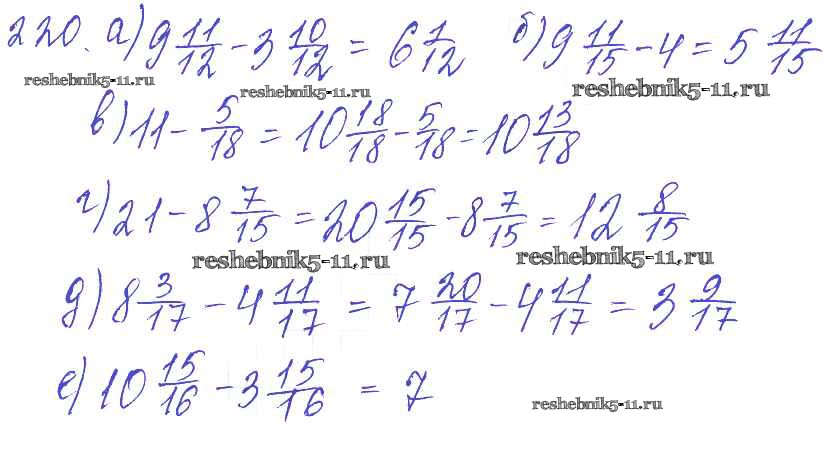 220. а) 9 11/12 - 3 10/12 = 6 1/12 б) 9 11/15 - 4 = 5 11/15
reshebnik5-11.ru reshebnik5-11.ru reshebnik5-11.ru
в) 11 - 5/18 = 10 18/18 - 5/18 = 10 13/18
г) 21 - 8 7/15 = 20 15/15 - 8 7/15 = 12 8/15
reshebnik5-11.ru reshebnik5-11.ru
д) 8 3/17 - 4 11/17 = 7 20/17 - 4 11/17 = 3 9/17
е) 10 15/16 - 3 15/16 = 7
reshebnik5-11.ru